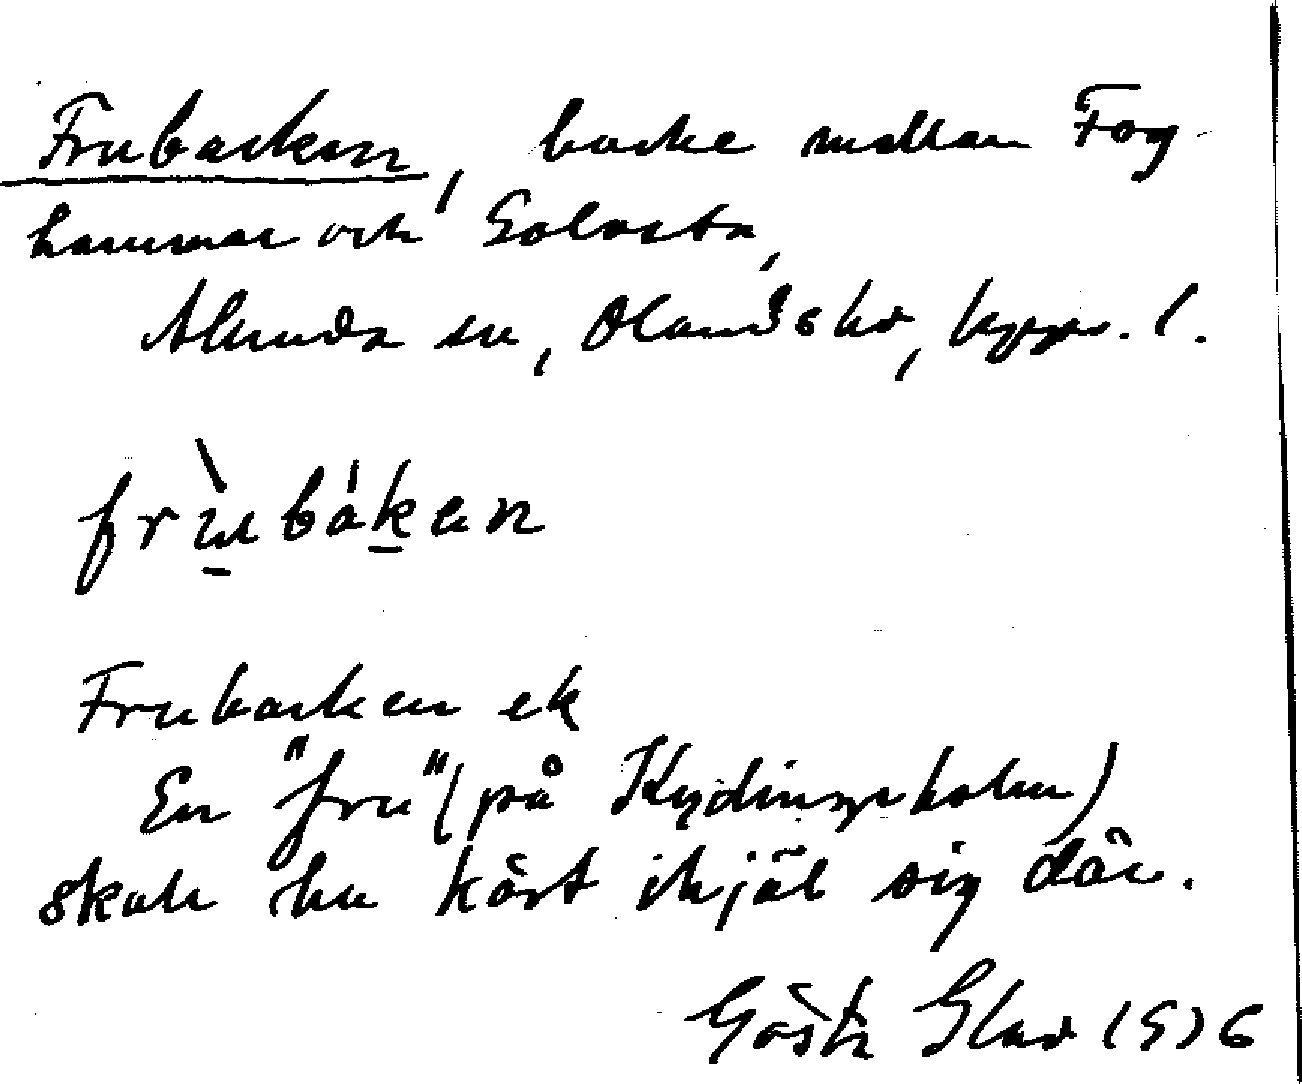 Frubacken, backe mellan Fog-
hammar och Golvsta,
Alunda sn, Olands hd, Upps. l.
frùbákan
Frubacken ek
En "fru" (på Kydingeholm)
skall ha kört ihjäl sig där.
Gösta Glad 1936